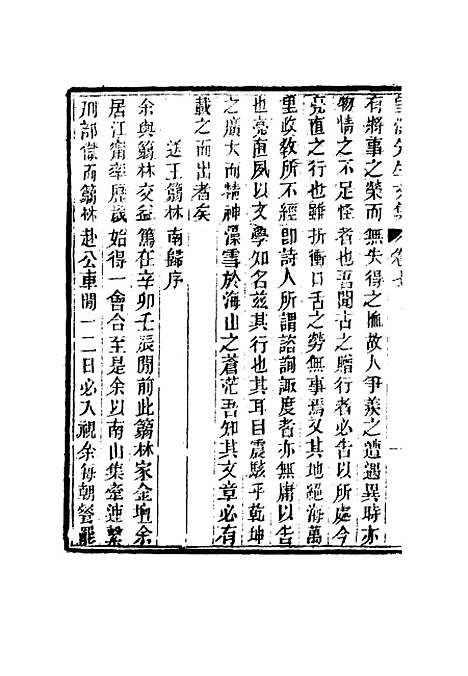 望溪先生文集 卷七
有將事之榮而無失得之恤故人爭羨之遭遇異時亦
物情之不足怪者也吾聞古之贈行者必告以所處今
亮直之行也雖折衝口舌之勞無事焉又其地絕海萬
里政敎所不經卽詩人所謂諮詢諏度者亦無庸以告
也亮直夙以文學知名茲其行也其耳目震駭乎乾坤
之廣大而精神澡雪於海山之蒼茫吾知其文章必有
載之而出者矣
送王篛林南歸序
余與篛林交益篤在辛卯壬辰閒前此篛林家金壇余
居江甯率歷歲始得一會合至是余以南山集牽連繫
刑部獄而篛林赴公車閒一二日必入視余每朝餐罷